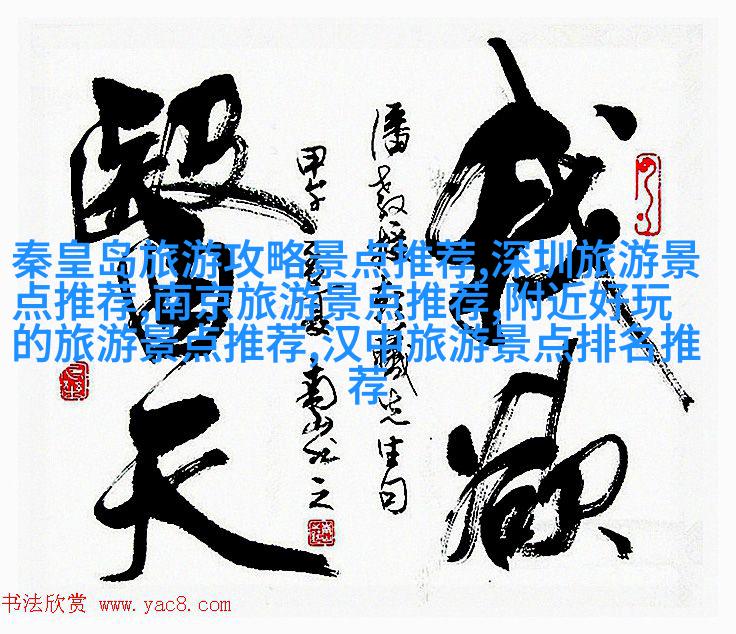 我欲
醫天
潘 先生句
甲午 夏 南山 之
秦皇岛旅游攻略景点推荐,深圳旅游景
点推荐,南京旅游景点推荐,附近好玩
的旅游景点推荐,汉中旅游景点排名推
荐
书法欣赏 www.yac8.com